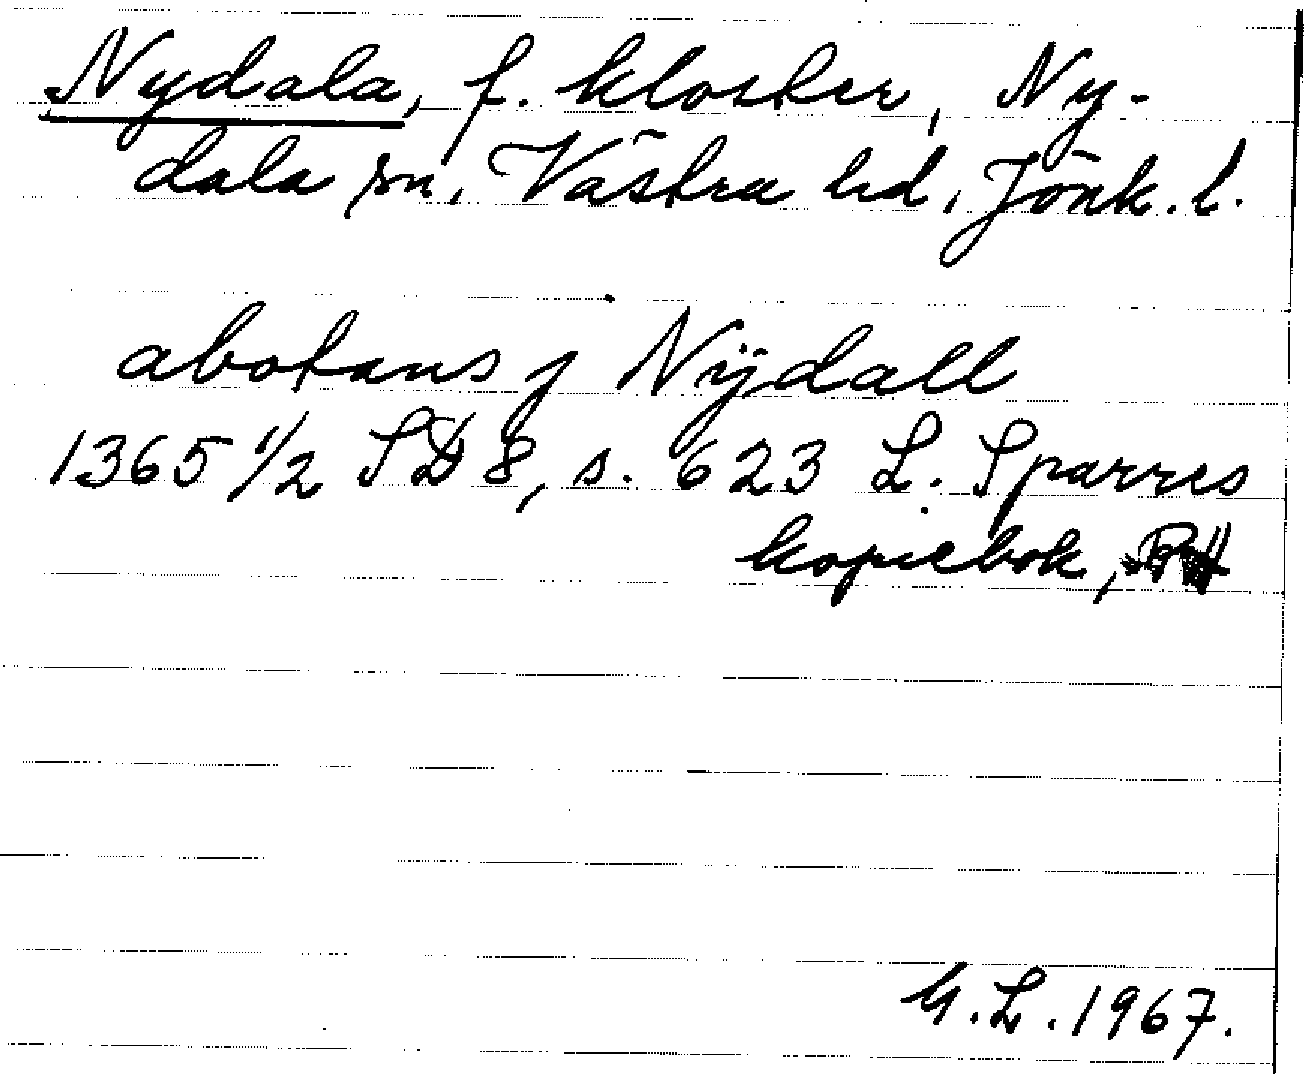 Nydala, f. kloster, Ny-
dala sn, Västra hd, Jönk. l.
abotans j Nÿdall
1365 1/2 SD 8, s. 623 L. Sparres
kopiebok,
G.L. 1967.